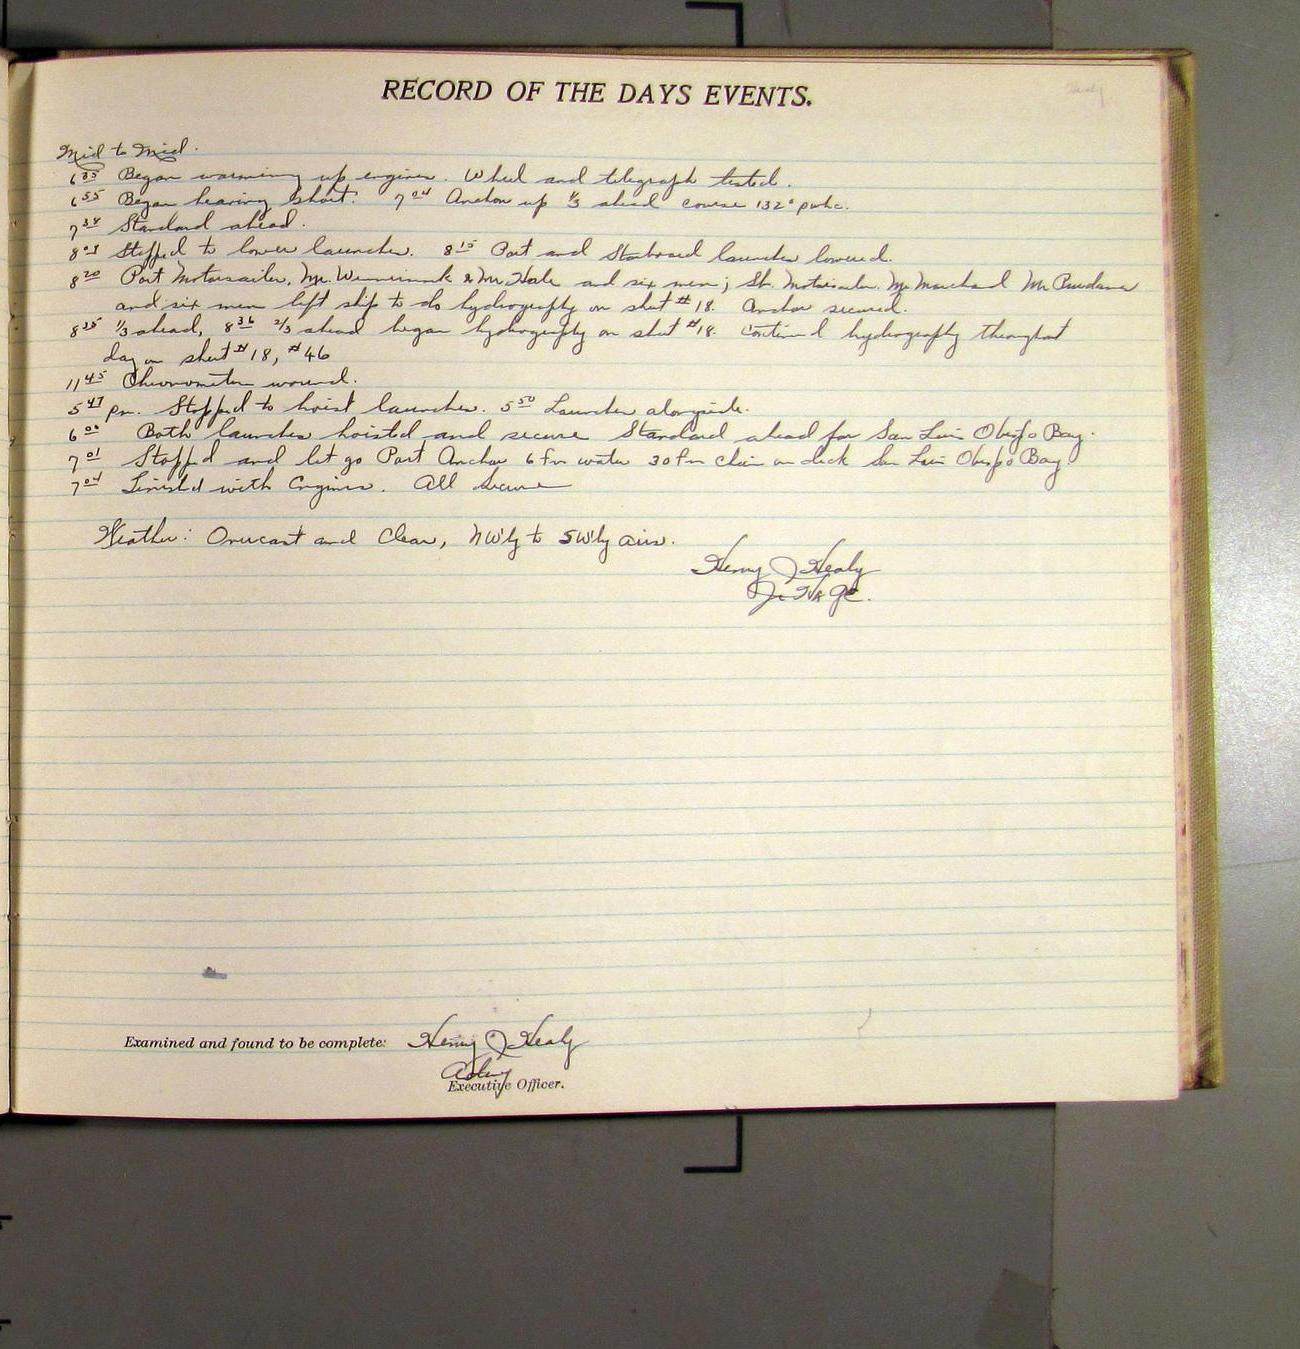 RECORD OF THE DAYS EVENTS.
Mid to Mid.
6 35 Began warming up engines. Wheel and telegraph tested.
6 55 Began heaving short. 7 04 Anchor up 1/3 ahead course 132°
7 38 Standard ahead.
Stopped to lower launches. 8 15 Port and Starboard launches lowered.
8 20 Port Motorsailer, Mr. & Mr. Hale and six men; St. Motorsailer Mr. Marchand Mr.
and six men left ship to do hydrography on sheet #18. Anchor secured.
8 35 1/3 ahead, 8 36 2/3 ahead began hydrography on sheet #18. Continued hydrography throughout
day on sheet #18, #46
11 45 Chronometers wound.
5 47 pm. Stopped to hoist launches. 5 50 Launches alongside.
6 00 Both launches hoisted and secure Standard ahead for San Luis Obispo Bay.
7 01 Stopped and let go Port Anchor 6 fm water 30 fm chain on deck San Luis Obispo Bay
7 04 Finished with Engines. All Secure
Weather: Overcast and Clear, NW'ly to SW'ly airs.
Henry J Healy
Examined and found to be complete: Henry J Healy
Acting
Executive Officer.